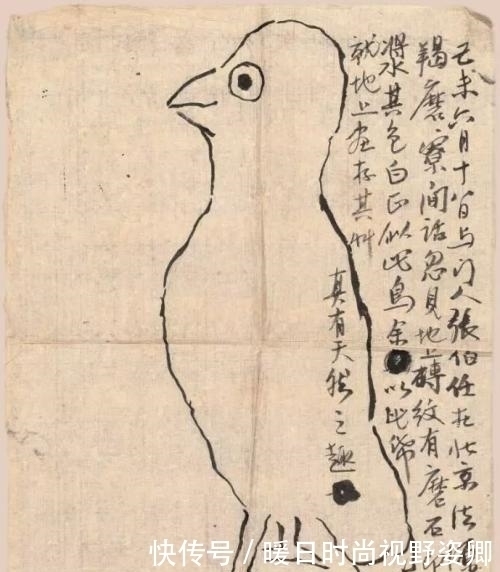 己未六月十八日与门人張伯任在北京法源
羯磨寮間話忽見地上磚紋有磨石
漿其色白正似此鳥余以此帋
就地上画存其艸
真有天然之趣
快传号／暖日时尚视野姿卿